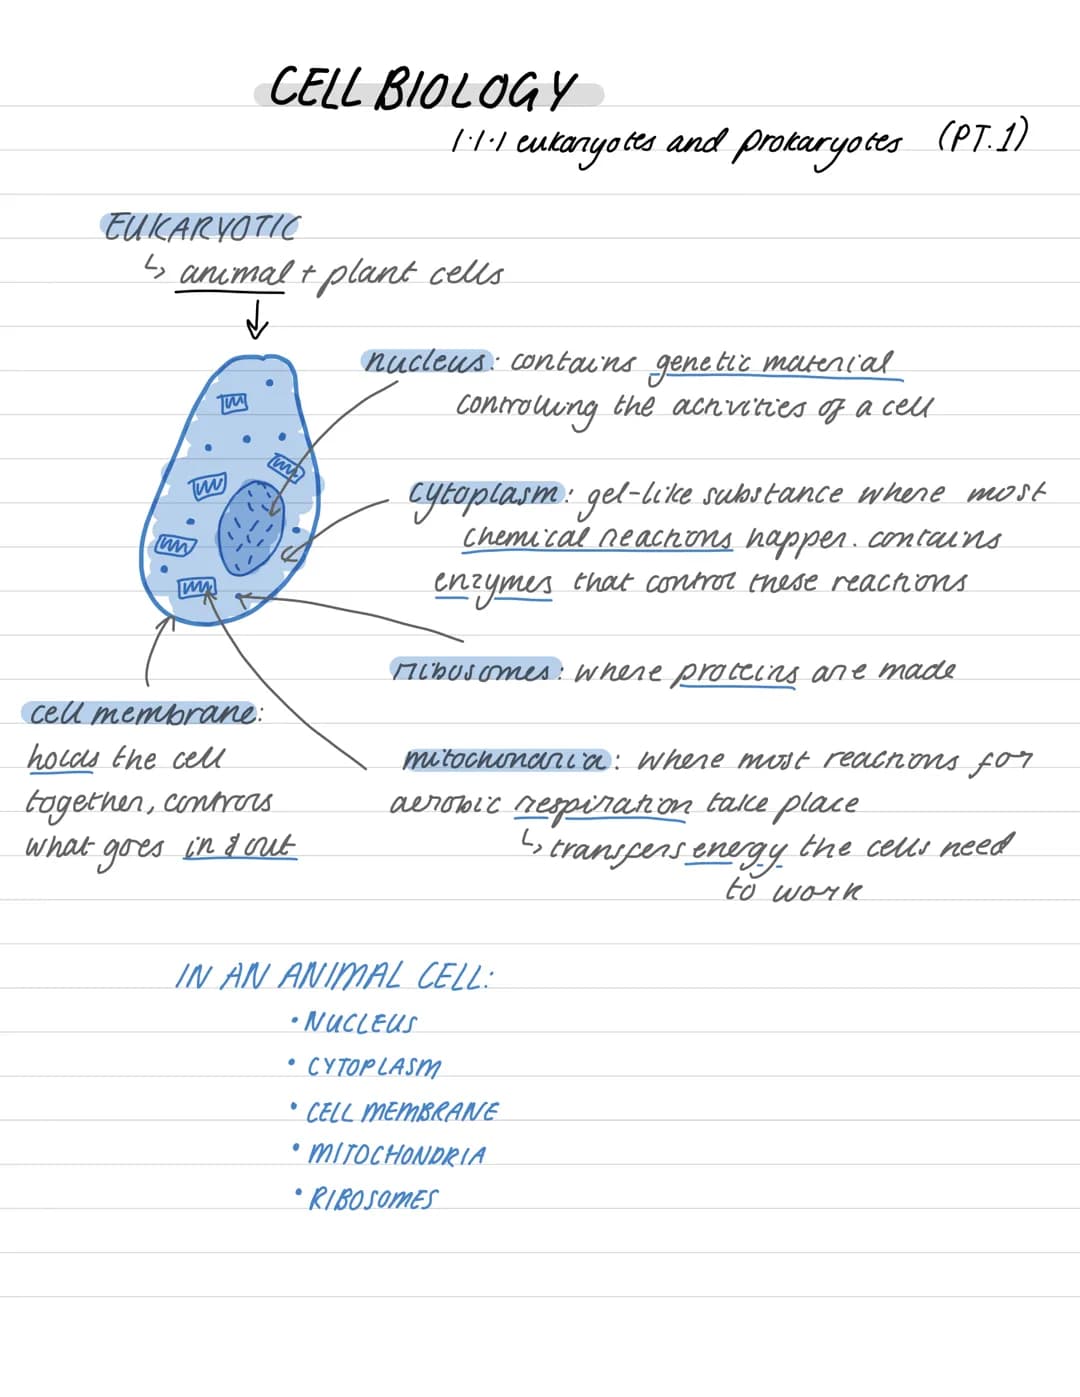 CELL BIOLOGY
1.1.1 eukaryotes and prokaryotes (PT.1)
EUKARYOTIC
↳ animal + plant cells
nucleus: contains genetic material
controlling the activities of a cell
cytoplasm: gel-like substance where most
chemical reactions happen. contains
enzymes that control these reactions
ribosomes: where proteins are made
cell membrane:
holds the cell
together, controls
what goes in & out
mitochondria: where most reactions for
aerobic respiration take place
↳ transfers energy the cells need
to work
IN AN ANIMAL CELL:
• NUCLEUS
• CYTOPLASM
• CELL MEMBRANE
• MITOCHONDRIA
• RIBOSOMES